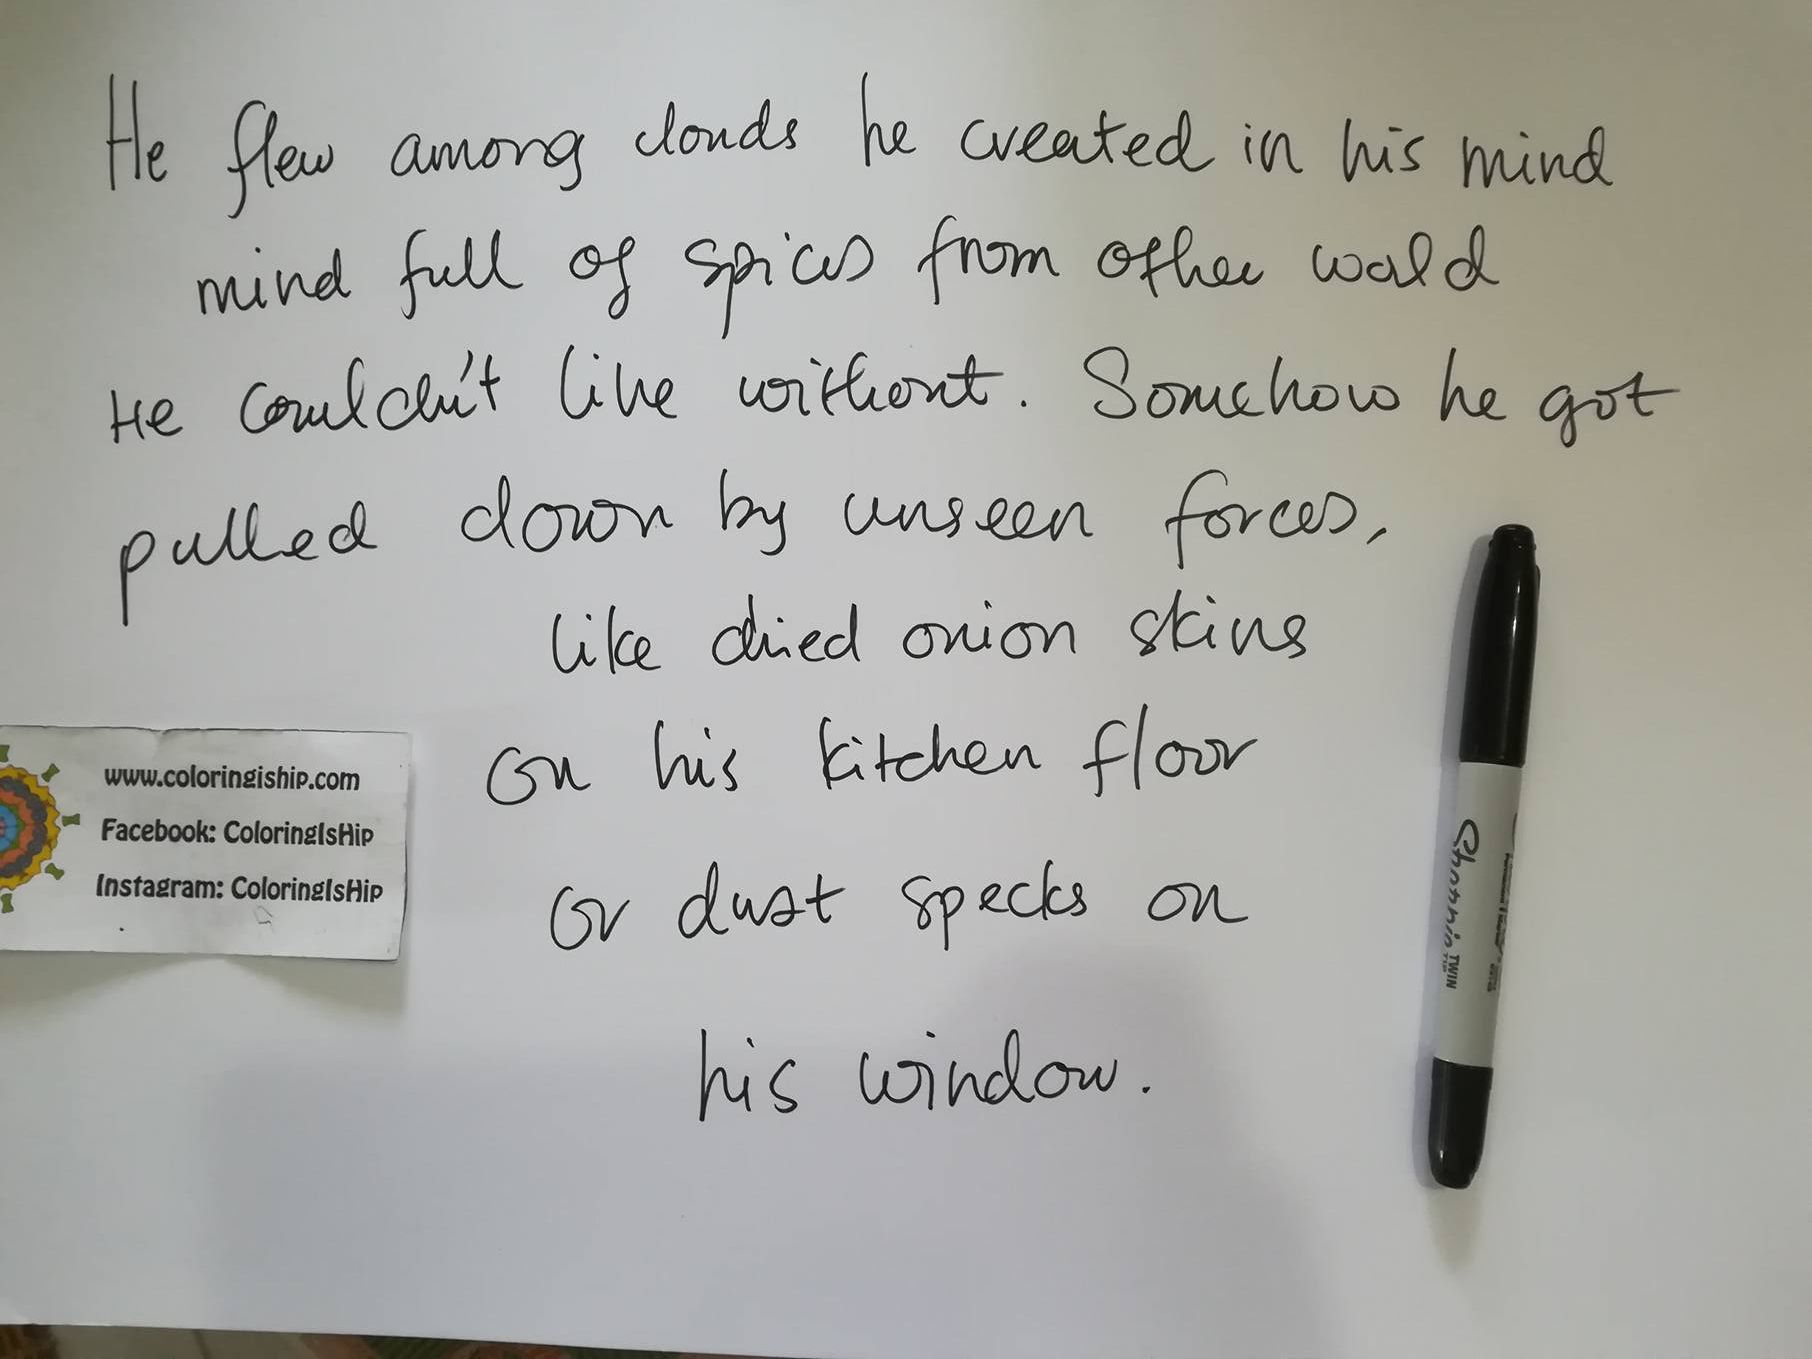 He flew among clouds he created in his mind
mind full of spices from other world
He couldn't live without. Somehow he got
pulled down by unseen forces,
like dried onion skins
on his kitchen floor
or dust specks on
his window.
www.coloringiship.com
Facebook: ColoringIsHip
Instagram: ColoringIsHip
TWIN
TIP